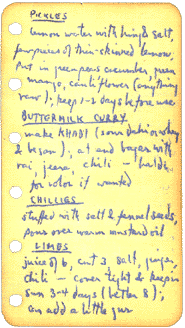 PICKLES
lemon water with hing & salt,
few pieces of thin-skinned lemon.
Put in green peas cucumber, green
mango, cauliflower (anything
raw); keep 1-2 days before use
BUTTERMILK CURRY
make KHADI (sour dahi or whey
& besan); at end bagar with
rai, jeera, chili - haldi
for color if wanted
CHILLIES
stuffed with salt & fennel seeds,
pour over warm mustard oil
LIMES
juice of 6, cut 3 salt, ginger,
chili - cover tight & keep in
sun 3-4 days (better 8);
can add a little gur